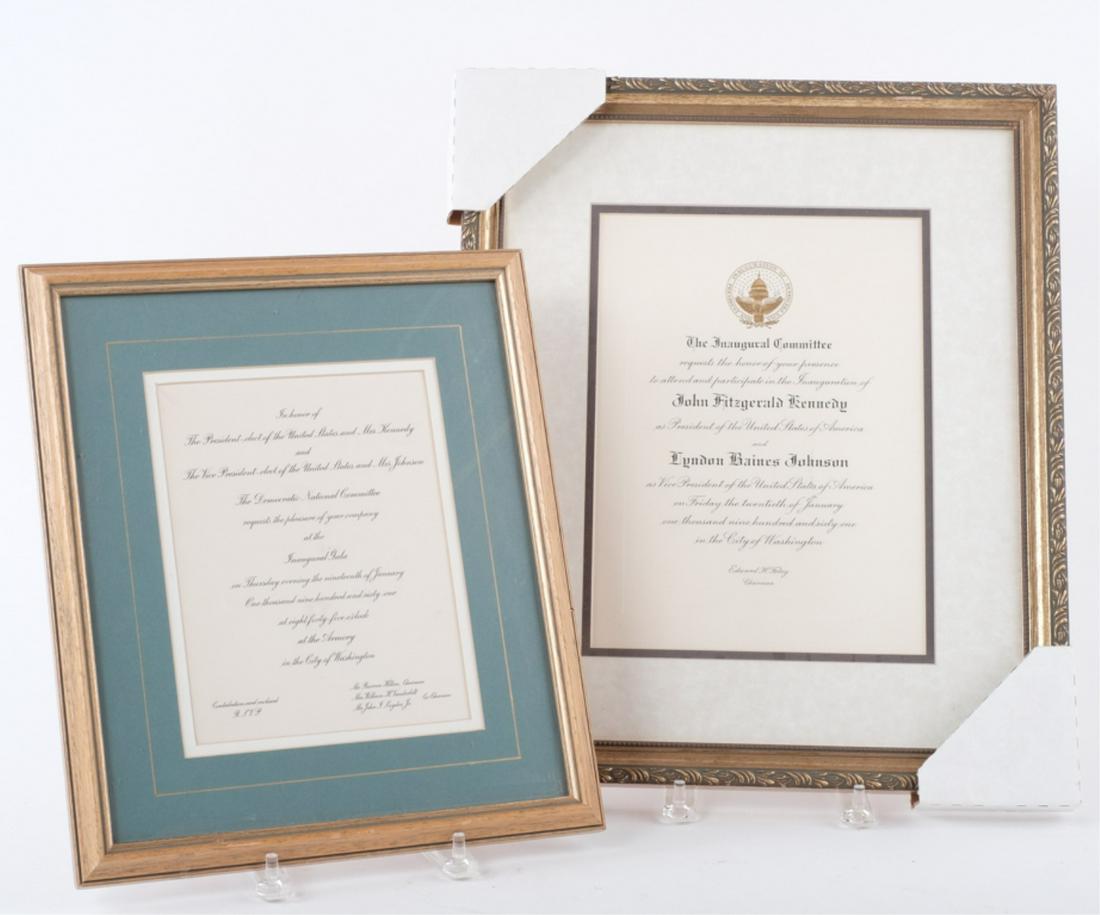 In honor of
The President-elect of the United States and Mrs. Kennedy
and
The Vice President-elect of the United States and Mrs. Johnson
The Democratic National Committee
requests the pleasure of your company
at the
Inaugural Gala
on Thursday evening the nineteenth of January
One thousand nine hundred and sixty-one
at eight forty-five o'clock
at the Armory
in the City of Washington
Contribution card enclosed
R.S.V.P.
Chairman
Co-Chairman
The Inaugural Committee
requests the honor of your presence
to attend and participate in the Inauguration of
John Fitzgerald Kennedy
as President of the United States of America
and
Lyndon Baines Johnson
as Vice President of the United States of America
on Friday the twentieth of January
one thousand nine hundred and sixty one
in the City of Washington
Edward H. Foley
Chairman